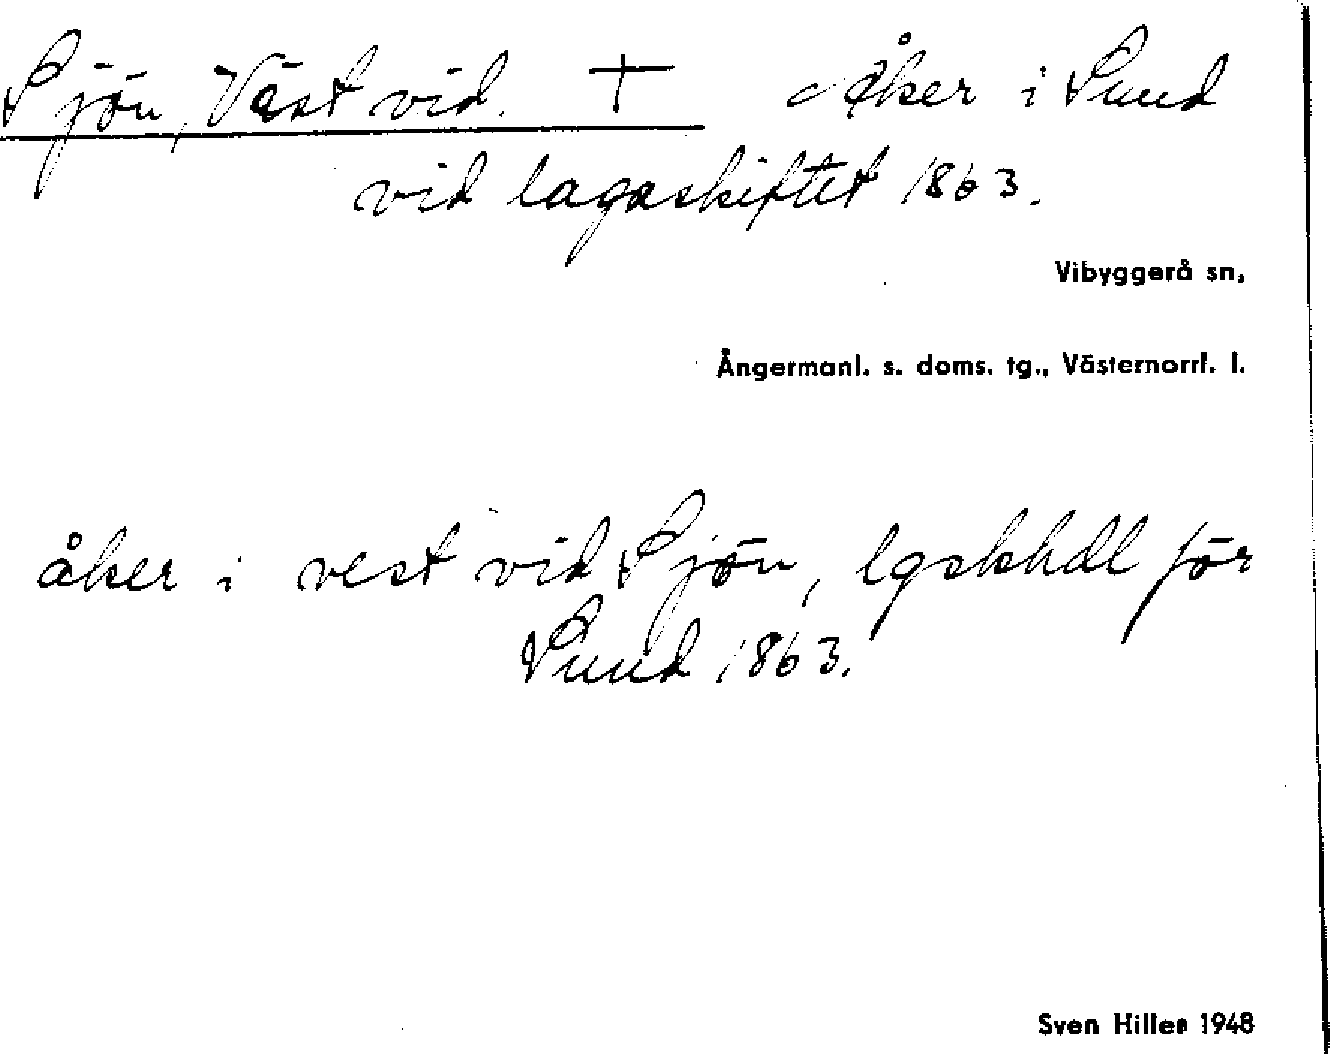 Sjön, Väst vid. † åker i Sund
vid lagaskiftet 1863.
Vibyggerå sn,
Ångermanl. s. doms. tg., Västernorrl. l.
åker i vest vid Sjön, lgskhdl för
Sund 1863.
Sven Hillen 1948